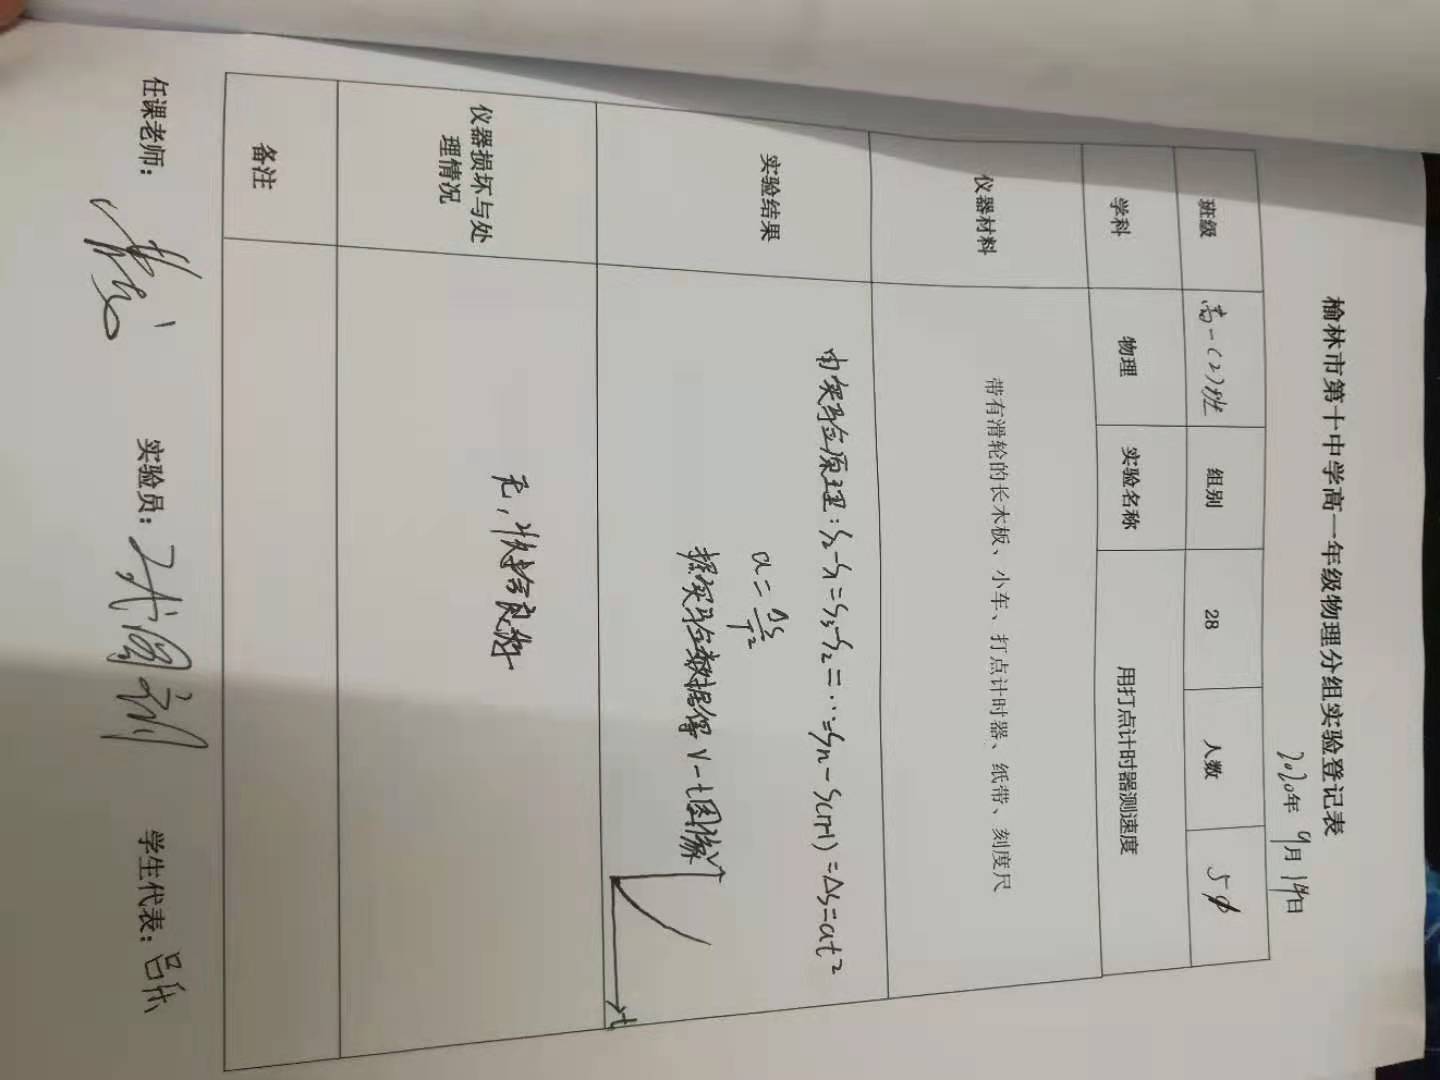 榆林市第十中学高一年级物理分组实验登记表
2020年 9月 14日
班级 高一(2)班 组别 28 人数
学科 物理 实验名称 用打点计时器测速度
仪器材料 带有滑轮的长木板、小车、打点计时器、纸带、刻度尺
实验结果
由实验原理：S₂-S₁=S₃-S₂=…=Sn-S(n-1)=ΔS=at²
a=ΔS/T²
据实验数据得v-t图像
v
t
仪器损坏与处
理情况
无，状态良好
备注
任课老师： 实验员： 学生代表：吕乐